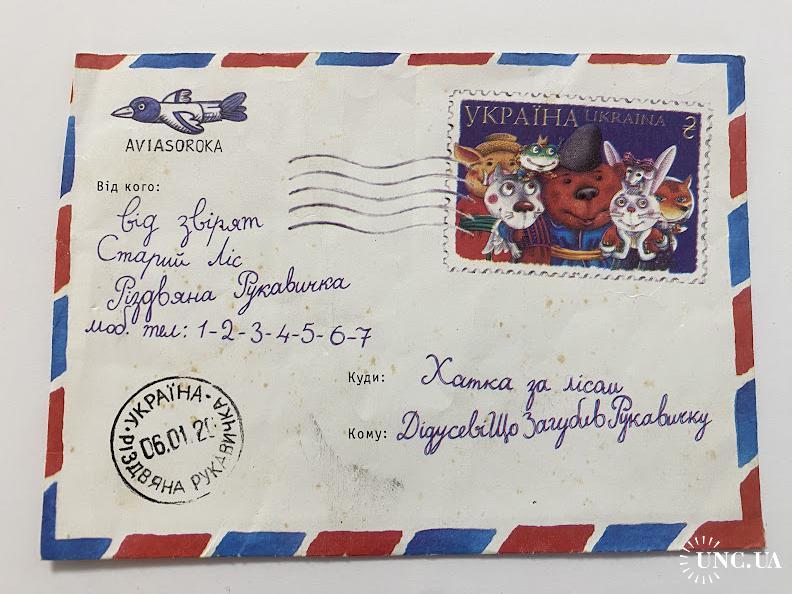 AVIASOROKA
УКРАЇНА UKRAINA
Від кого:
від звірят
Старий Ліс
Різдвяна Рукавичка
моб. тел: 1-2-3-4-5-6-7
Куди: Хатка за лісом
Кому: ДідусевіЩо Загубив Рукавичку
·УКРАЇНА·
06.01.20
РІЗДВЯНА РУКАВИЧКА
UNC.UA